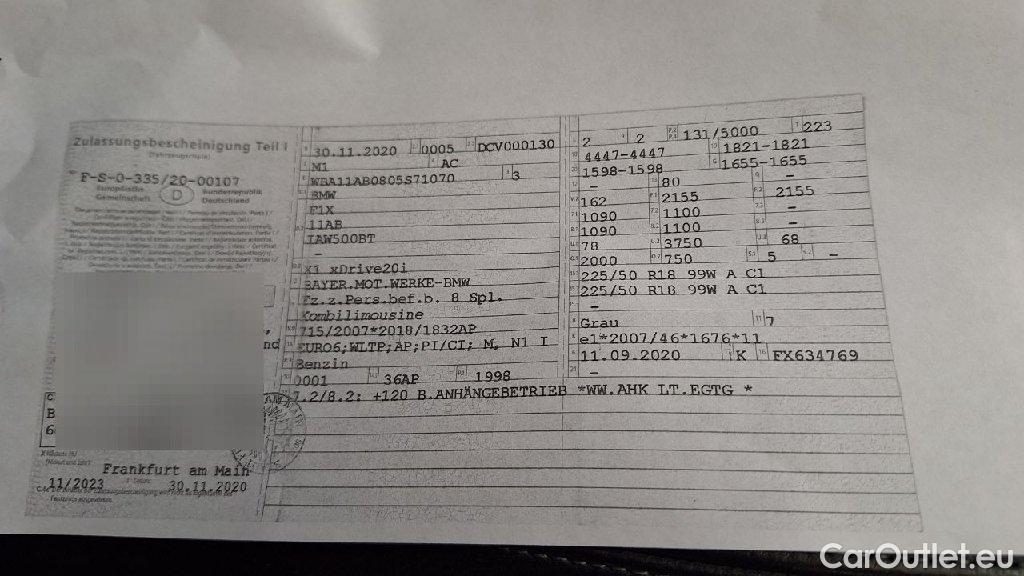 Zulassungsbescheinigung Teil I
(Fahrzeugschein)
F-S-0-335/20-00107
Europäische Gemeinschaft D Bundesrepublik Deutschland
nd
C
B
6
11/2023
Frankfurt am Main
30.11.2020
30.11.2020 0005 DCV000130
M1 AC
WBA11AB0805S71070 3
BMW
F1X
11AB
IAW500BT
–
X1 xDrive20i
BAYER.MOT.WERKE-BMW
Fz.z.Pers.bef.b. 8 Spl.
Kombilimousine
715/2007*2018/1832AP
EURO6;WLTP;AP;PI/CI; M, N1 I
Benzin
0001 36AP 1998
7.2/8.2: +120 B.ANHÄNGEBETRIEB *WW.AHK LT.EGTG *
2 2 131/5000 223
4447-4447 1821-1821
1598-1598 1655-1655
– 80 –
162 2155 2155
1090 1100 –
1090 1100 –
78 3750 68
2000 750 5 –
225/50 R18 99W A C1
225/50 R18 99W A C1
–
Grau 7
e1*2007/46*1676*11
11.09.2020 K FX634769
–
CarOutlet.eu